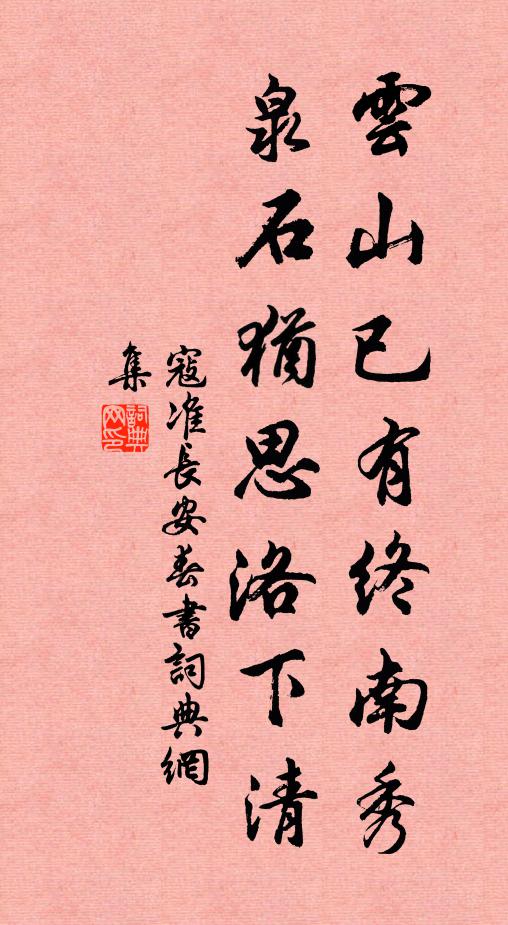 雲山已有終南秀
泉石猶思洛下清
寇准長安春書詞典網
集
詞典网印